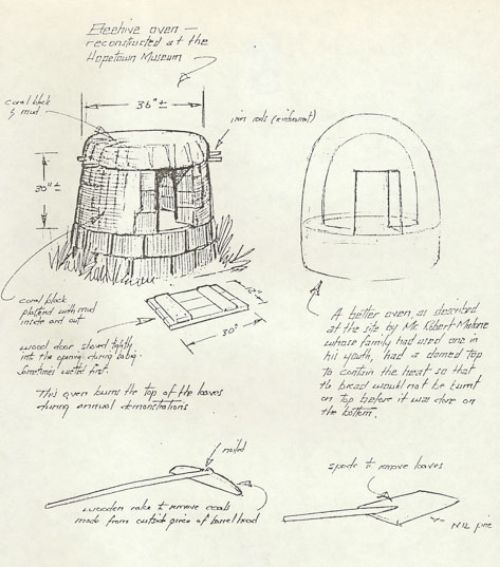 Beehive oven —
reconstructed at the
Hopetown Museum
coral block
& mud
36" ±
iron rods (reinforcement)
30" ±
coral block
plastered with mud
inside and out
wood door shoved tightly
into the opening during baking.
Sometimes wetted first.
30"
This oven burns the top of the loaves
during annual demonstrations
A better oven, as described
at the site by Mr. Robert Malone
whose family had used one in
his youth, had a domed top
to contain the heat so that
the bread would not be burnt
on top before it was done on
the bottom.
nailed
wooden rake to remove coals
made from outside piece of barrel head
spade to remove loaves
pine